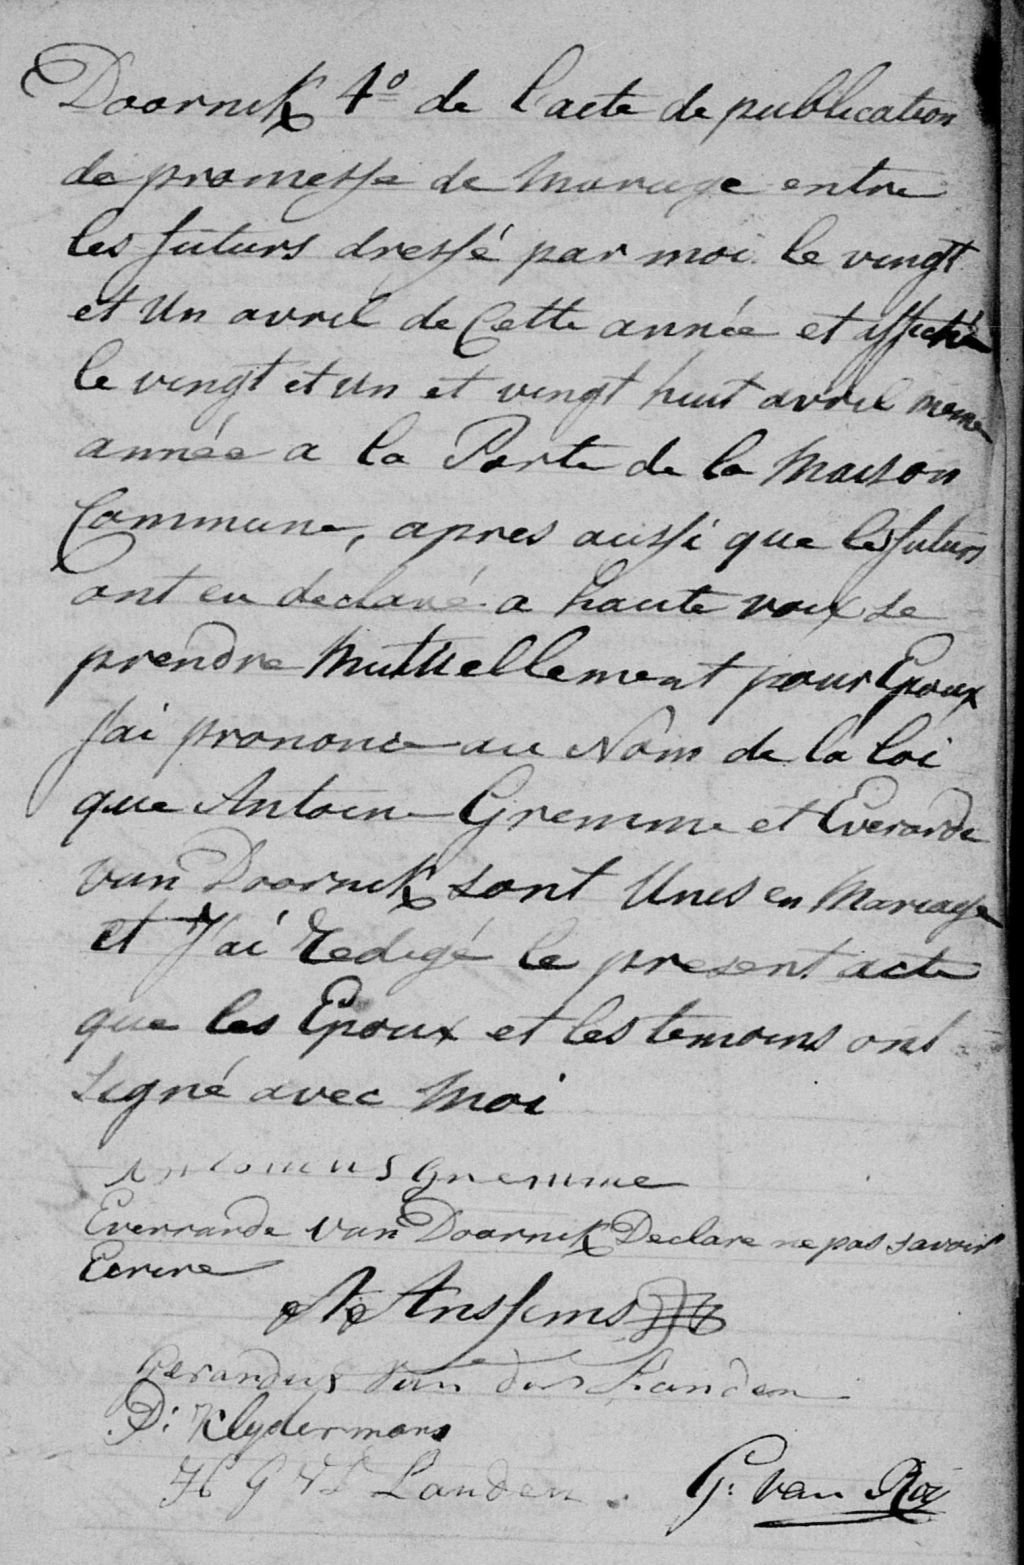 Doornik 4º de l'acte de publication
de promesse de Mariage entre
les futurs dressé par moi le vingt
et Un avril de Cette année et affiché
le vingt et un et vingt huit avril meme
année a la Porte de la Maison
Commune, apres aussi que les futurs
ont eu declaré a haute voix se
prendre Mutuellement pour Epoux
J'ai prononcé au Nom de la loi
que Antoine Gremme et Everarde
van Doornik sont Unis en Mariage
et J'ai Redigé le present acte
que les Epoux et les temoins ont
signé avec Moi
Antonius Gremme
Everrarde van Doornik Declare ne pas savoir
Ecrire
Anssems
Gerardus Van der Landen
D: Klydermans
H G V D Landen
G: van Roy